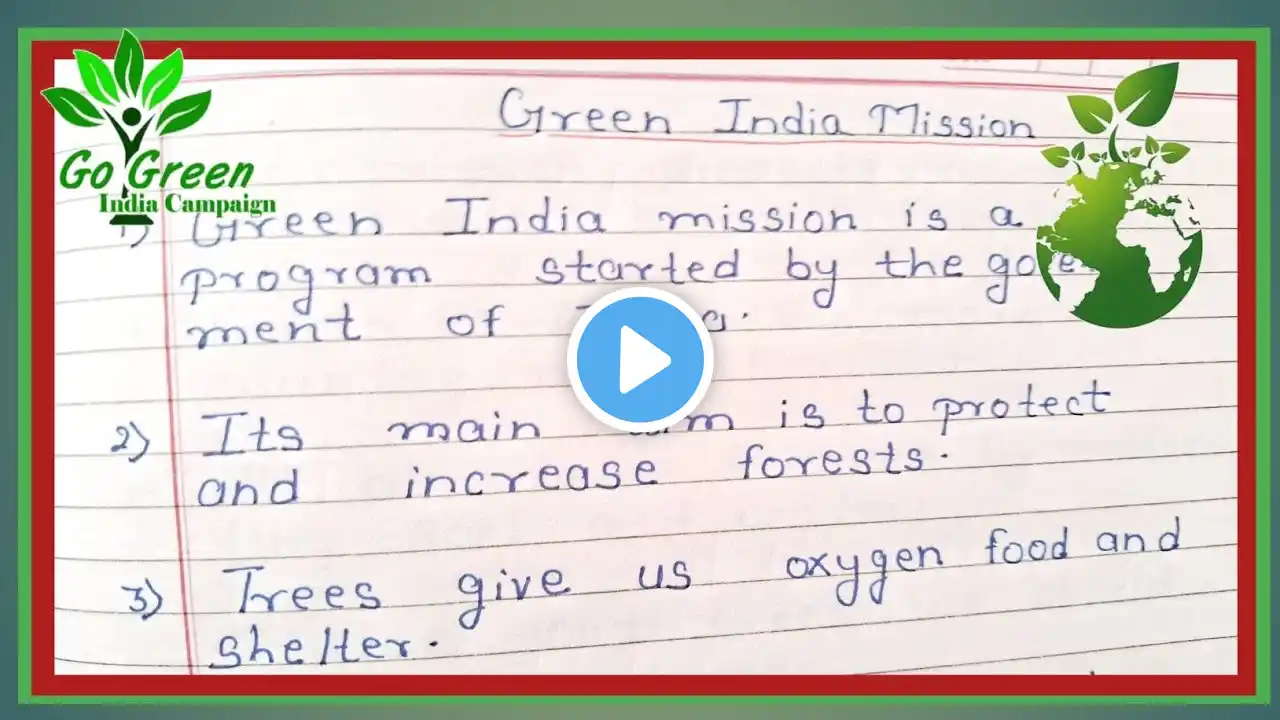 Green India Mission
Go Green
India Campaign
1) Green India mission is a
program started by the
ment of
2) Its main is to protect
and increase forests.
3) Trees give us oxygen food and
shelter.